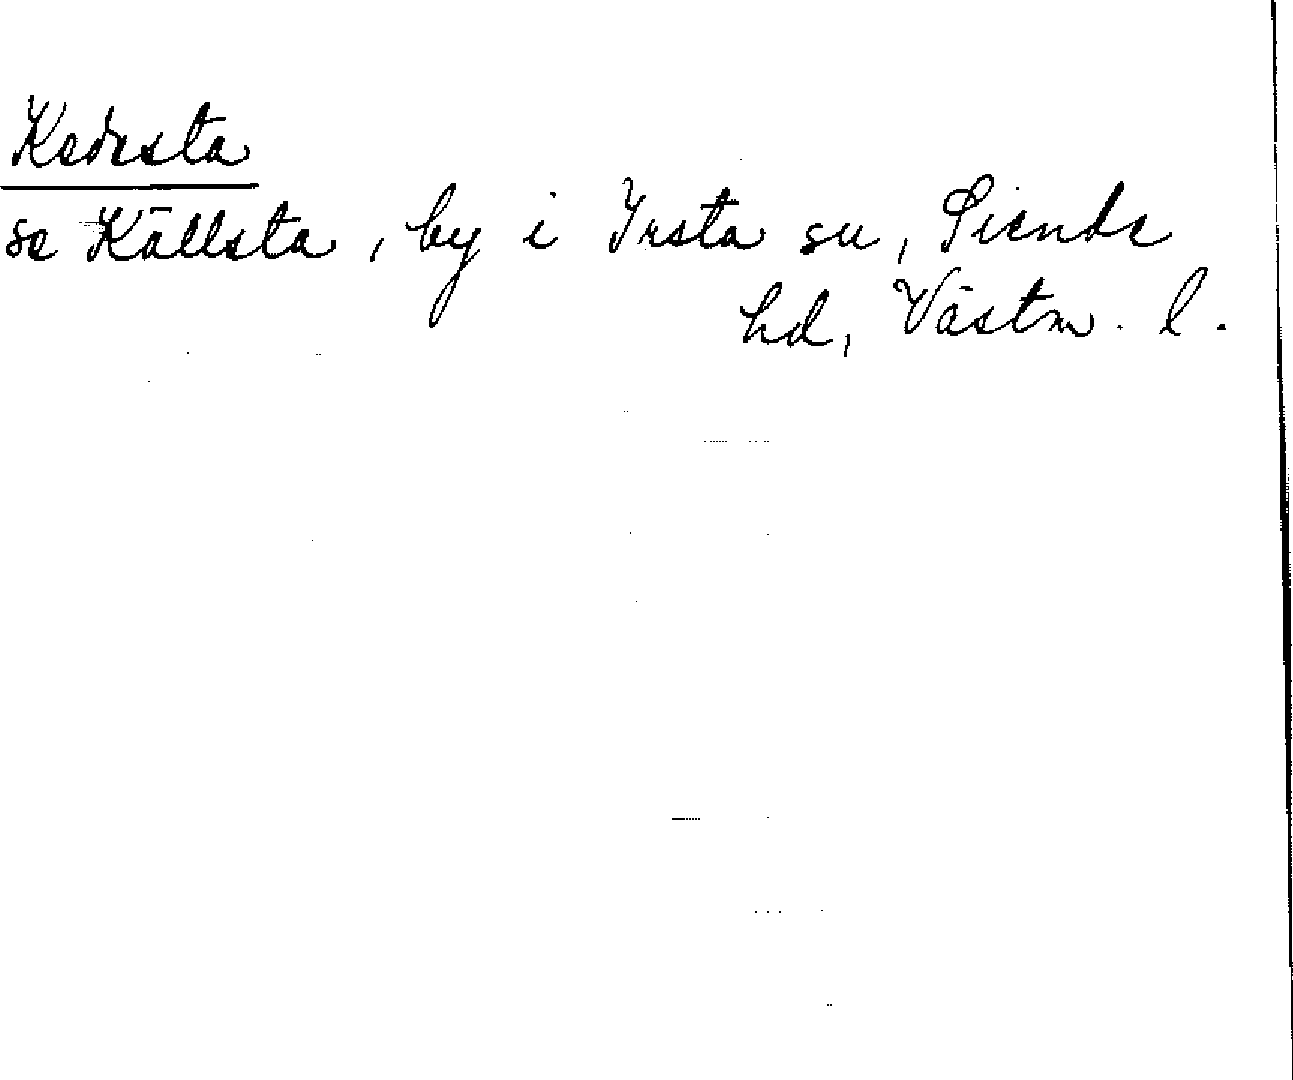 Kedesta
se Källsta, by i Irsta sn, Siende
hd, Västm. l.